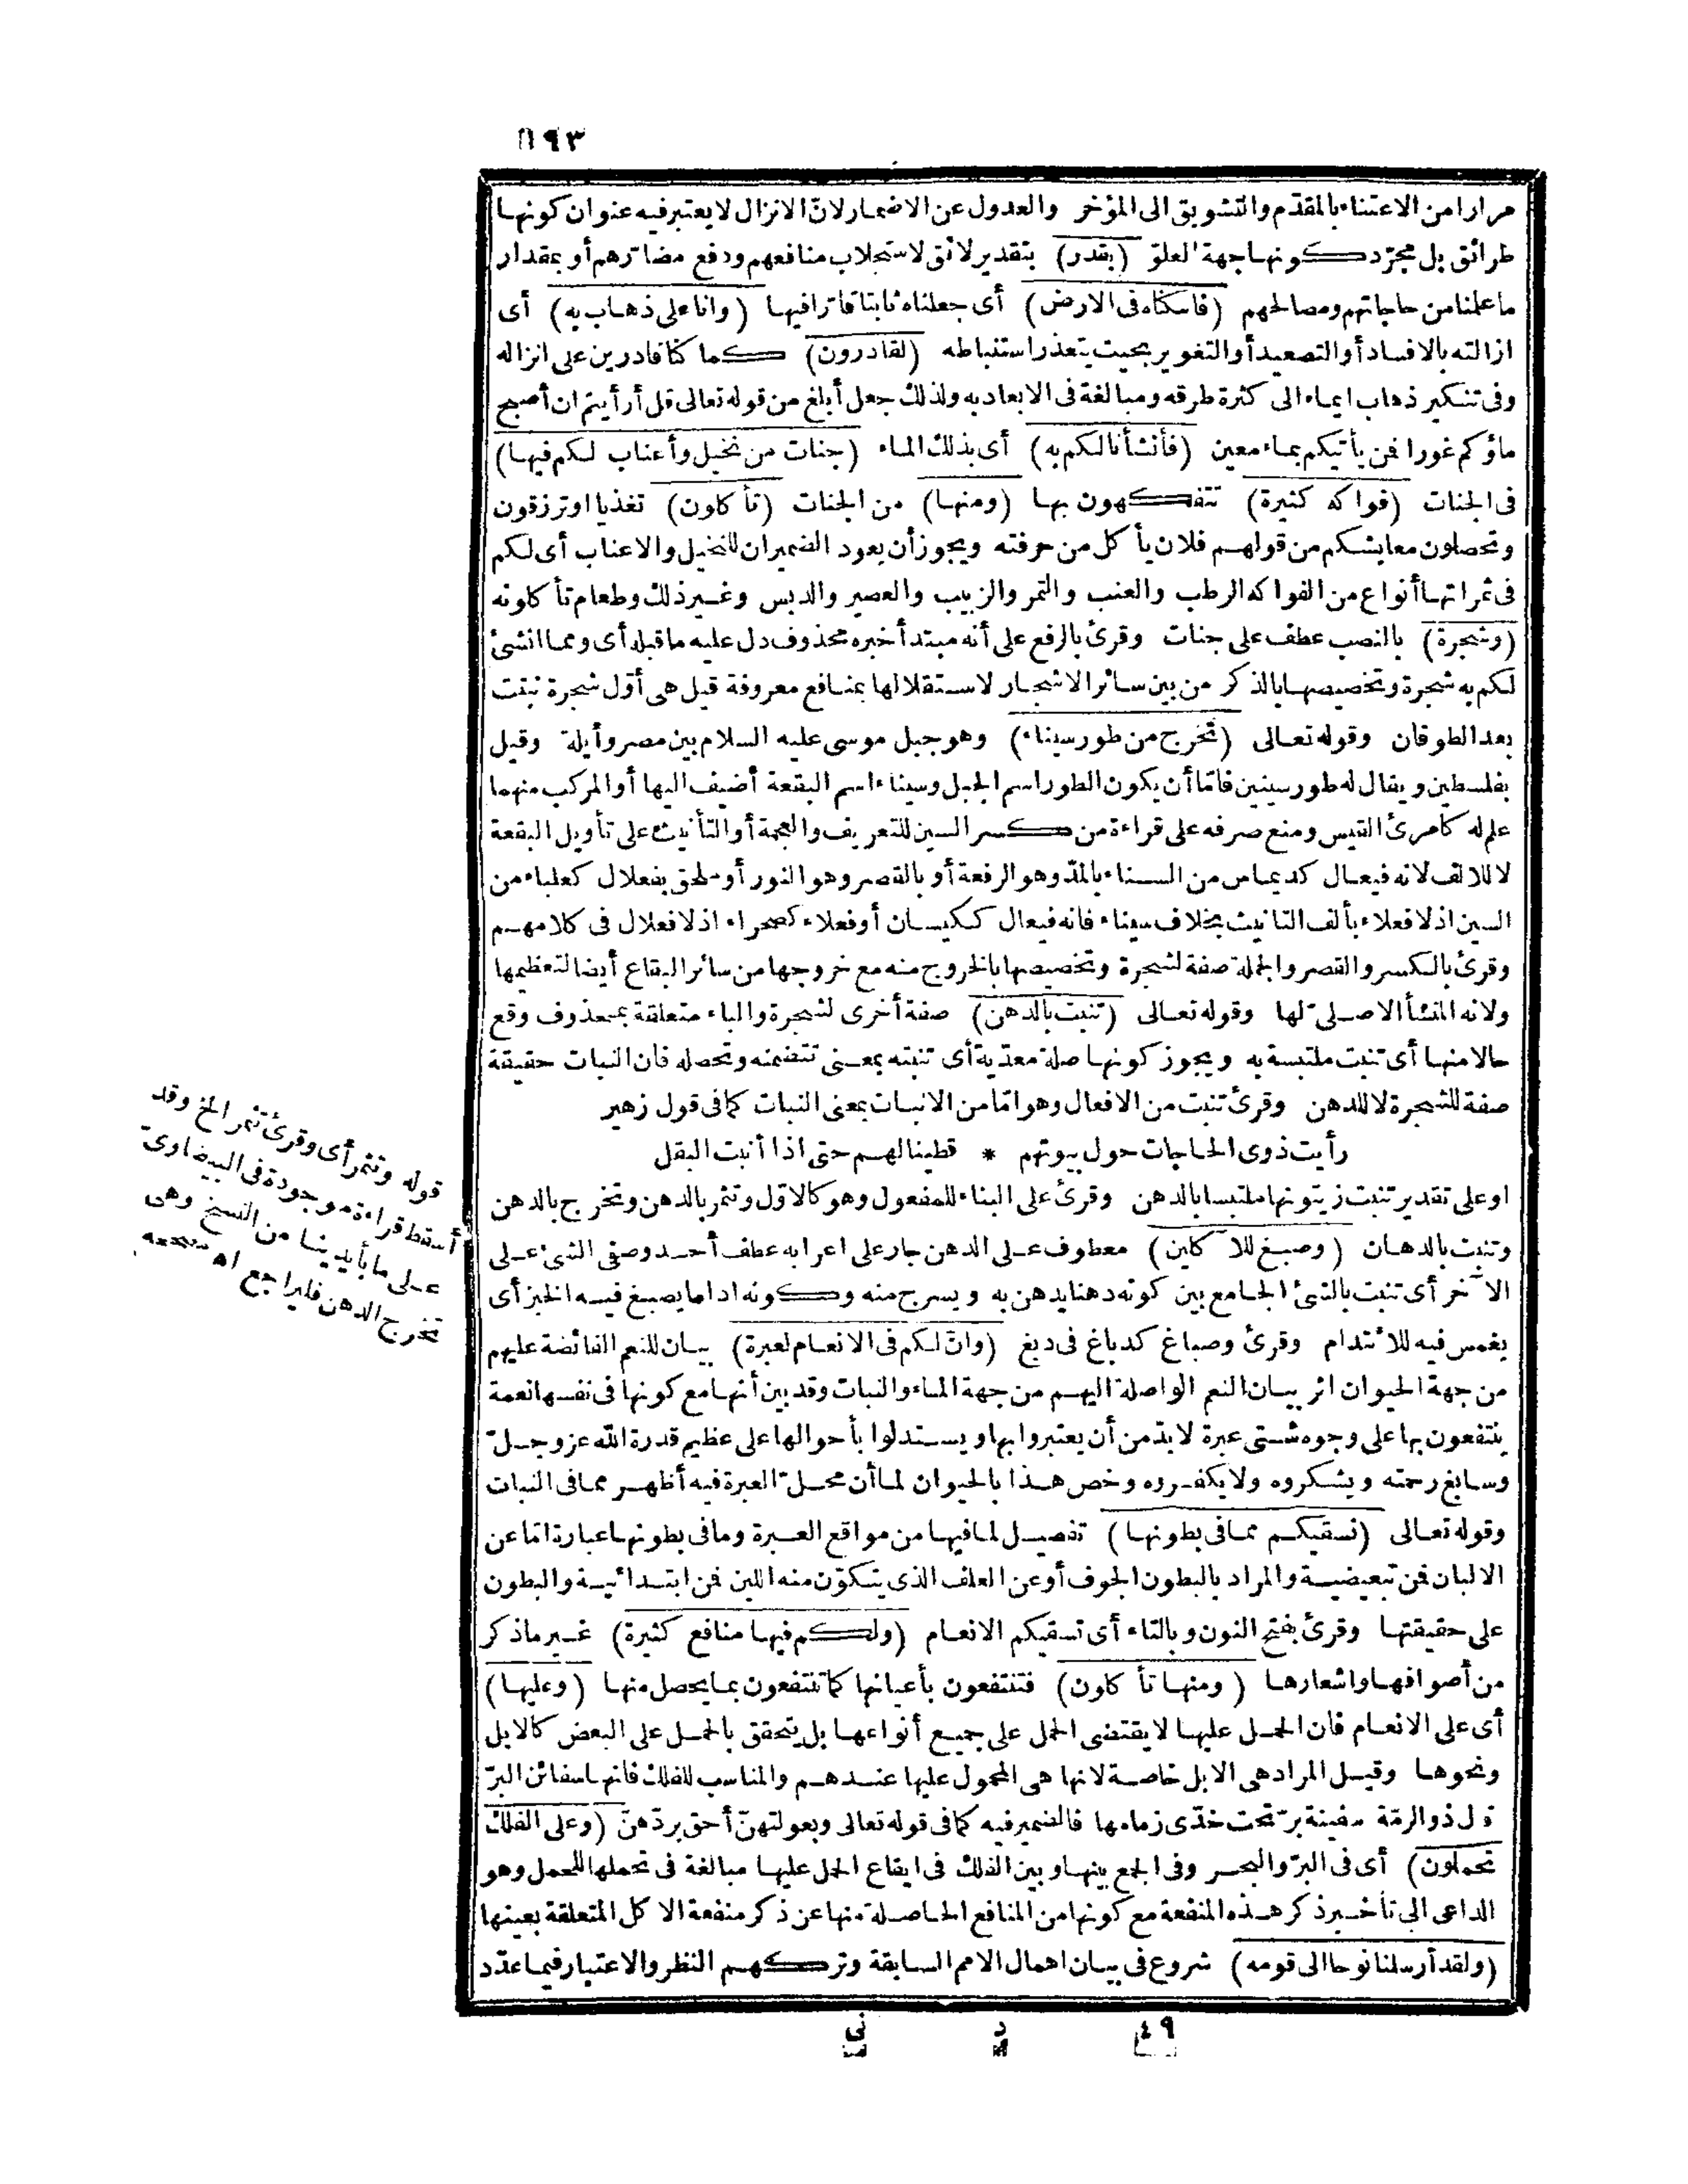 ١٩٣
مرارا من الاعتناء بالمقدّم والتشويق الى المؤخر والعدول عن الاضمار لانّ الانزال لا يعتبر فيه عنوان كونها
طرائق بل مجرّد كونها جهة العلوّ (بقدر) بتقدير لائق لاستجلاب منافعهم ودفع مضارّهم أو بمقدار
ما علمنا من حاجاتهم ومصالحهم (فاسكناه فى الارض) أى جعلناه ثابتا قارّا فيها (وانا على ذهاب به) أى
ازالته بالافساد أو التصعيد أو التغوير بحيث يتعذر استنباطه (لقادرون) كما كنا قادرين على انزاله
وفى تنكير ذهاب ايماء الى كثرة طرقه ومبالغة فى الابعاد به ولذلك جعل أبلغ من قوله تعالى قل أرأيتم ان أصبح
ماؤكم غورا فمن يأتيكم بماء معين (فأنشأنا لكم به) أى بذلك الماء (جنات من نخيل وأعناب لكم فيها)
فى الجنات (فواكه كثيرة) تتفكهون بها (ومنها) من الجنات (تأكلون) تغذيا او ترزقون
وتحصلون معايشكم من قولهم فلان يأكل من حرفته ويجوز أن يعود الضميران للنخيل والاعناب أى لكم
فى ثمراتها أنواع من الفواكه الرطب والعنب والتمر والزبيب والعصير والدبس وغير ذلك وطعام تأكلونه
(وشجرة) بالنصب عطف على جنات وقرئ بالرفع على أنه مبتدأ خبره محذوف دل عليه ما قبله أى ومما انشئ
لكم به شجرة وتخصيصها بالذكر من بين سائر الاشجار لاستقلالها بمنافع معروفة قيل هى أوّل شجرة نبتت
بعد الطوفان وقوله تعالى (تخرج من طور سيناء) وهو جبل موسى عليه السلام بين مصر وأيلة وقيل
بفلسطين ويقال له طور سينين فامّا أن يكون الطور اسم الجبل وسيناء اسم البقعة أضيف اليها أو المركب منهما
علم له كامرئ القيس ومنع صرفه على قراءة من كسر السين للتعريف والعجمة أو التأنيث على تأويل البقعة
لا للالف لانه فيعال كديماس من السناء بالمدّ وهو الرفعة أو بالقصر وهو النور أو ملحق بفعلال كعلباء من
السين اذ لا فعلاء بألف التانيث بخلاف سيناء فانه فيعال ككيسان أو فعلاء كصحراء اذ لا فعلال فى كلامهم
وقرئ بالكسر والقصر والجملة صفة لشجرة وتخصيصها بالخروج منه مع خروجها من سائر البقاع أيضا لتعظيمها
ولانه المنشأ الاصلىّ لها وقوله تعالى (تنبت بالدهن) صفة أخرى لشجرة والباء متعلقة بمحذوف وقع
حالا منها أى تنبت ملتبسة به ويجوز كونها صلة معدّية أى تنبته بمعنى تتضمنه وتحصله فان النبات حقيقة
صفة للشجرة لا للدهن وقرئ تنبت من الافعال وهو امّا من الانبات بمعنى النبات كما فى قول زهير
رأيت ذوى الحاجات حول بيوتهم * قطينا لهم حتى اذا أنبت البقل
او على تقدير تنبت زيتونها ملتبسا بالدهن وقرئ على البناء للمفعول وهو كالاوّل وتثمر بالدهن وتخرج بالدهن
وتنبت بالدهان (وصبغ للآكلين) معطوف على الدهن جار على اعرابه عطف أحد وصفى الشئ على
الآخر أى تنبت بالشئ الجامع بين كونه دهنا يدهن به ويسرج منه وكونه اداما يصبغ فيه الخبز أى
يغمس فيه للائتدام وقرئ وصباغ كدباغ فى دبغ (وانّ لكم فى الانعام لعبرة) بيان للنعم الفائضة عليهم
من جهة الحيوان اثر بيان النعم الواصلة اليهم من جهة الماء والنبات وقد بين أنها مع كونها فى نفسها نعمة
ينتفعون بها على وجوه شتى عبرة لا بدّ من أن يعتبروا بها ويستدلوا بأحوالها على عظيم قدرة الله عز وجلّ
وسابغ رحمته ويشكروه ولا يكفروه وخص هذا بالحيوان لما أن محلّ العبرة فيه أظهر مما فى النبات
وقوله تعالى (نسقيكم مما فى بطونها) تفصيل لما فيها من مواقع العبرة وما فى بطونها عبارة امّا عن
الالبان فمن تبعيضية والمراد بالبطون الجوف أو عن العلف الذى يتكوّن منه اللبن فمن ابتدائية والبطون
على حقيقتها وقرئ بفتح النون وبالتاء أى تسقيكم الانعام (ولكم فيها منافع كثيرة) غير ما ذكر
من أصوافها واشعارها (ومنها تأكلون) فتنتفعون بأعيانها كما تنتفعون بما يحصل منها (وعليها)
أى على الانعام فان الحمل عليها لا يقتضى الحمل على جميع أنواعها بل يتحقق بالحمل على البعض كالابل
ونحوها وقيل المراد هى الابل خاصة لانها هى المحمول عليها عندهم والمناسب للفلك فانها سفائن البرّ
قال ذو الرمّة سفينة برّ تحت خدّى زمامها فالضمير فيه كما فى قوله تعالى وبعولتهنّ أحق بردّهنّ (وعلى الفلك
تحملون) أى فى البرّ والبحر وفى الجمع بينها وبين الفلك فى ايقاع الحمل عليها مبالغة فى تحملها للحمل وهو
الداعى الى تأخير ذكر هذه المنفعة مع كونها من المنافع الحاصلة منها عن ذكر منفعة الاكل المتعلقة بعينها
(ولقد أرسلنا نوحا الى قومه) شروع فى بيان اهمال الامم السابقة وتركهم النظر والاعتبار فيما عدّد
قوله وتثمر أى وقرئ تثمر الخ وقد
أسقط قراءة موجودة فى البيضاوىّ
على ما بأيدينا من النسخ وهى
تخرج الدهن فليراجع اه مصححه
٤٩ د نى